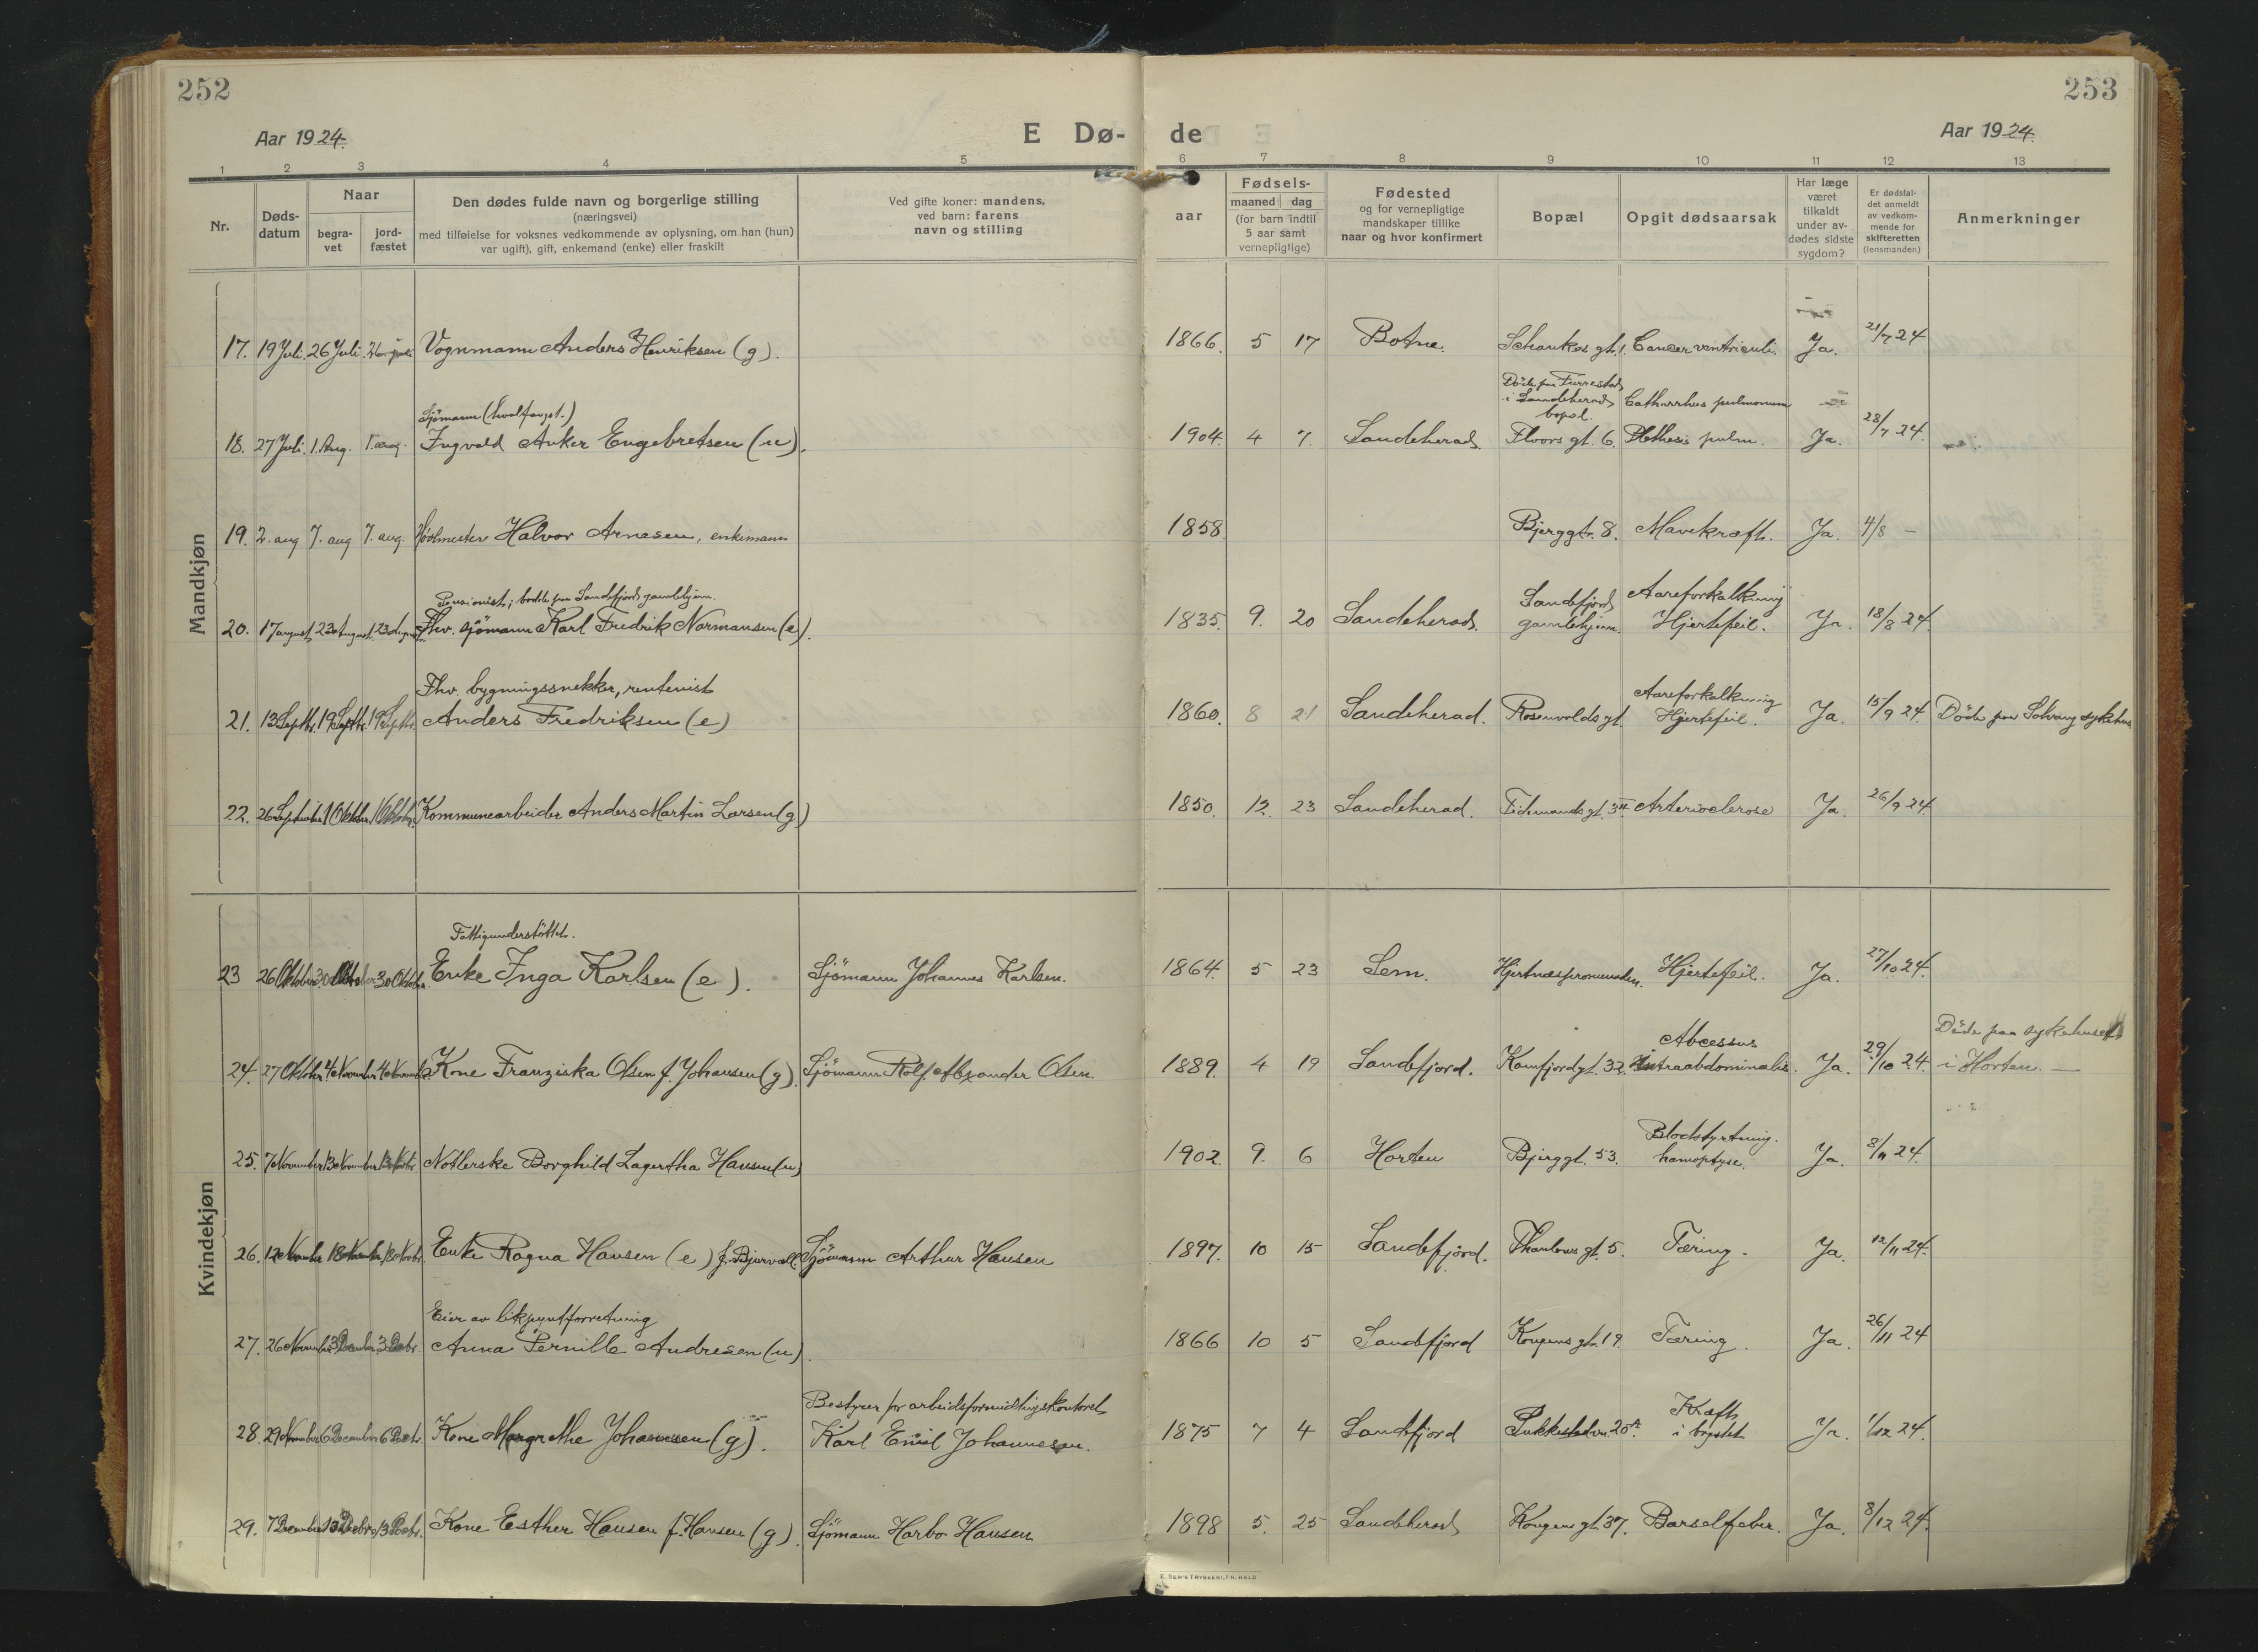 252
253
Aar 1924.
E Dø-
de
Aar 1924.
1 2 3 4 5 6 7 8 9 10 11 12 13
Nr.
Døds-
datum
Naar
begra-
vet
jord-
fæstet
Den dødes fulde navn og borgerlige stilling
(næringsvei)
med tilføielse for voksnes vedkommende av oplysning, om han (hun)
var ugift), gift, enkemand (enke) eller fraskilt
Ved gifte koner: mandens,
ved barn: farens
navn og stilling
aar
Fødsels-
maaned dag
(for barn indtil
5 aar samt
vernepligtige)
Fødested
og for vernepligtige
mandskaper tillike
naar og hvor konfirmert
Bopæl
Opgit dødsaarsak
Har læge
været
tilkaldt
under av-
dødes sidste
sygdom?
Er dødsfal-
det anmeldt
av vedkom-
mende for
skifteretten
(lensmanden)
Anmerkninger
Mandkjøn
17. 19 Juli. 26 Juli. 26 juli Vognmann Anders Henriksen (g). 1866. 5 17 Botne. Schankes gt. 1. Cancer ventriculi. Ja. 21/7 24
Sjömann (hvalfangst.) Döde paa Furrestad
i Sandeherad, Catharrhus pulmonum
bopæl.
18. 27 Juli. 1. Aug. 1. aug. Ingvald Anker Engebretsen (u). 1904. 4 7. Sandeherad. Floors gt. 6. Phthisis pulm. Ja. 28/7 24.
19. 2. aug 7. aug 7. aug. Halvor Arnesen, enkemann 1858. Bjerggt. 8. Mavekræft. Ja. 4/8 —
Pensionist; bodde paa Sandefjords gamlehjem. Sandefjord Aareforkalkning
20. 17 august 23 August. 23 August. Fhv. sjömann Karl Fredrik Normansen (e). 1835. 9. 20 Sandeherad. gamlehjem. Hjertefeil. Ja. 18/8 24.
Fhv. bygningssnekker, rentenist Aareforkalkning
21. 13 Septbr. 19 Septbr. 19 Septbr. Anders Fredriksen (e) 1860. 8 21 Sandeherad. Rosenvolds gt. Hjertefeil. Ja. 15/9 24. Döde paa Solvang sykehus
22. 26 September 1 Oktober. 1 Oktober. Kommunearbeider Anders Martin Larsen (g) 1850. 12. 23 Sandeherad. Tidemands gt. 34. Arteriosclerose Ja. 26/9 24.
Kvindekjøn
Fattigunderstöttet.
23 26 Oktober 30 Oktober 30 Oktober. Enke Inga Karlsen (e). Sjömann Johannes Karlsen. 1864. 5 23 Sem. Hjertnæspromenaden. Hjertefeil. Ja. 27/10 24.
Abcessus Döde paa sykehuset
24. 27 Oktober 4 November 4 November. Kone Franziska Olsen f. Johansen (g). Sjömann Rolf Alexander Olsen. 1889. 4 19 Sandefjord. Kamfjordgt. 32. intraabdominalis. Ja. 29/10 24. i Horten. —
Blodstyrtning.
25. 7 November 13 November 13 Novbr. Borghild Lagertha Hansen (u) 1902. 9. 6 Horten Bjerggt. 53. hæmoptyse. Ja. 8/11 24.
26. 12 November 18 November 18 Novbr. Enke Ragna Hansen (e) f. Bjurvall. Sjömann Arthur Hansen 1897. 10 15 Sandefjord. Thaulows gt. 5. Tæring. Ja. 12/11 24.
Eier av likpyntforretning
27. 26 November 3 December 3 Decbr. Anna Pernille Andresen (u). 1866 10 5 Sandefjord Kongens gt. 19. Tæring. Ja. 26/11 24
Bestyrer for arbeidsformidlingskontoret Kræft
28. 29 November 6 December 6 Decbr. Kone Margrethe Johannesen (g). Karl Emil Johannesen. 1875 7 4 Sandefjord Pukkestadvn. 20A. i brystet. Ja. 1/12 24.
29. 7 December 13 Decbr. 13 Decbr. Kone Esther Hansen f. Hansen (g). Sjömann Harbo Hansen 1898 5. 25 Sandeherad Kongens gt. 37. Barselfeber. Ja. 8/12 24.
E. SEM'S TRYKKERI, FR.HALD